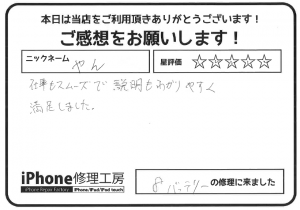 本日は当店をご利用頂きありがとうございます!
ご感想をお願いします!
ニックネーム やん 星評価 ☆☆☆☆☆
仕事もスムーズで説明もわかりやすく
満足しました。
iPhone修理工房
iPhone Repair Factory iPhone/iPad/iPod touch
8 バッテリー の修理に来ました